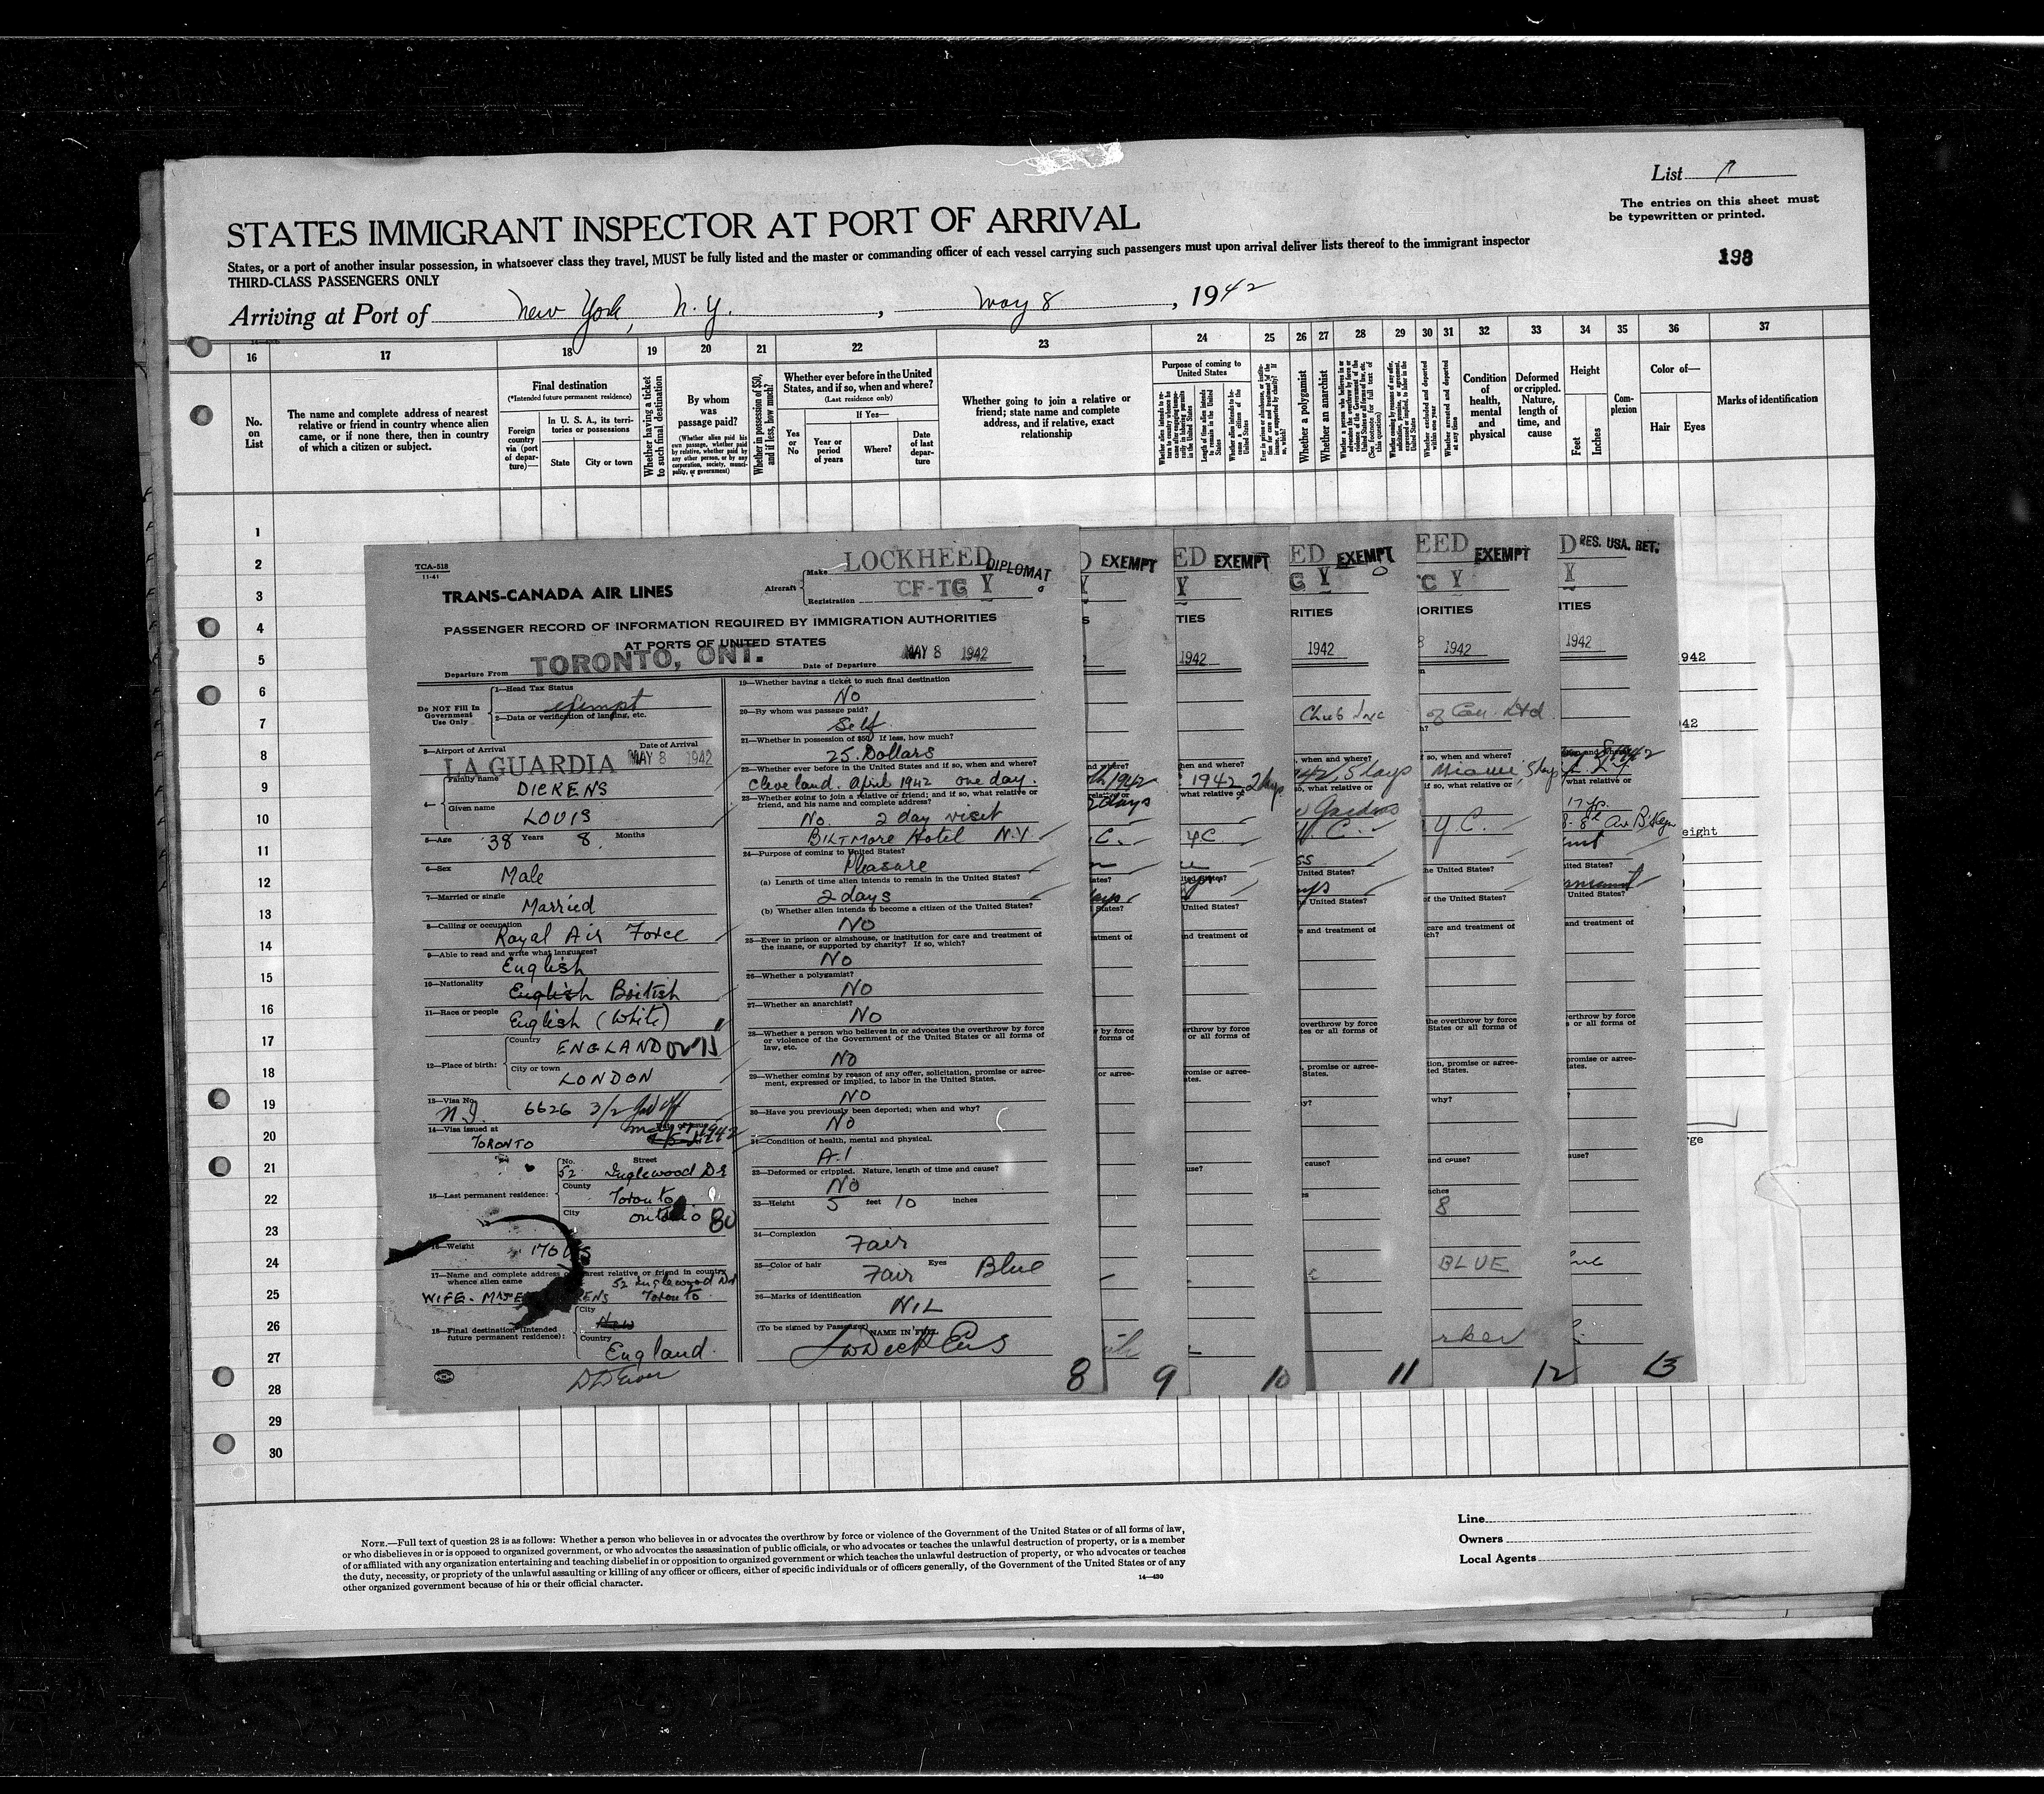 List
The entries on this sheet must
be typewritten or printed.
198
STATES IMMIGRANT INSPECTOR AT PORT OF ARRIVAL
States, or a port of another insular possession, in whatsoever class they travel, MUST be fully listed and the master or commanding officer of each vessel carrying such passengers must upon arrival deliver lists thereof to the immigrant inspector
THIRD-CLASS PASSENGERS ONLY
Arriving at Port of New York, N.Y., May 8, 1942
16 17 18 19 20 21 22 23 24 25 26 27 28 29 30 31 32 33 34 35 36 37
No. on List
The name and complete address of nearest relative or friend in country whence alien came, or if none there, then in country of which a citizen or subject.
Final destination
(*Intended future permanent residence)
Foreign country via (port of departure)—
In U. S. A., its territories or possessions
State
City or town
Whether having a ticket to such final destination
By whom was passage paid?
(Whether alien paid his own passage, whether paid by relative, whether paid by any other person, or by any corporation, society, municipality, or government)
Whether in possession of $50, and if less, how much?
Whether ever before in the United States, and if so, when and where?
(Last residence only)
Yes or No
If Yes—
Year or period of years
Where?
Date of last departure
Whether going to join a relative or friend; state name and complete address, and if relative, exact relationship
Purpose of coming to United States
Length of time alien intends to remain in the United States
Whether a polygamist
Whether an anarchist
Whether excluded and deported within one year
Whether arrested and deported at any time
Condition of health, mental and physical
Deformed or crippled. Nature, length of time, and cause
Height
Feet
Inches
Complexion
Color of—
Hair
Eyes
Marks of identification
1
2
3
4
5
6
7
8
9
10
11
12
13
14
15
16
17
18
19
20
21
22
23
24
25
26
27
28
29
30
TCA-518
11-41
TRANS-CANADA AIR LINES
Aircraft
Make LOCKHEED
DIPLOMAT
Registration CF-TG Y
PASSENGER RECORD OF INFORMATION REQUIRED BY IMMIGRATION AUTHORITIES
AT PORTS OF UNITED STATES
Departure From TORONTO, ONT.
Date of Departure MAY 8 1942
Do NOT Fill In
Government
Use Only
1—Head Tax Status
exempt
2—Data or verification of landing, etc.
3—Airport of Arrival
LA GUARDIA
Date of Arrival
MAY 8 1942
4—
Family name
DICKENS
Given name
LOUIS
5—Age 38 Years 8 Months
6—Sex
Male
7—Married or single
Married
8—Calling or occupation
Royal Air Force
9—Able to read and write what languages?
English
10—Nationality
English British
11—Race or people
English (White)
12—Place of birth:
Country
ENGLAND
City or town
LONDON
13—Visa No.
6626 3/2
14—Visa issued at
TORONTO
15—Last permanent residence:
No. Street
52 Inglewood Dr
County
Toronto
City
Ontario
80
16—Weight
17—Name and complete address of nearest relative or friend in country
whence alien came
52 Inglewood Dr
WIFE - Toronto
18—Final destination (Intended
future permanent residence):
City
Country
England
19—Whether having a ticket to such final destination
No
20—By whom was passage paid?
Self
21—Whether in possession of $50. If less, how much?
25 Dollars
22—Whether ever before in the United States and if so, when and where?
Cleveland. April 1942 one day.
23—Whether going to join a relative or friend; and if so, what relative or
friend, and his name and complete address?
No. 2 day visit
BILTMORE Hotel N.Y
24—Purpose of coming to United States?
Pleasure
(a) Length of time alien intends to remain in the United States?
2 days
(b) Whether alien intends to become a citizen of the United States?
No
25—Ever in prison or almshouse, or institution for care and treatment of
the insane, or supported by charity? If so, which?
No
26—Whether a polygamist?
No
27—Whether an anarchist?
No
28—Whether a person who believes in or advocates the overthrow by force
or violence of the Government of the United States or all forms of
law, etc.
No
29—Whether coming by reason of any offer, solicitation, promise or agree-
ment, expressed or implied, to labor in the United States.
No
30—Have you previously been deported; when and why?
No
31—Condition of health, mental and physical.
A.1
32—Deformed or crippled. Nature, length of time and cause?
No
33—Height 5 feet 10 inches
34—Complexion
Fair
35—Color of hair Fair Eyes Blue
36—Marks of identification
NIL
(To be signed by Passenger) NAME IN FULL
8
EXEMPT
9
ED EXEMPT
Y
TIES
1942
1942 2 days
10
ED EXEMPT
G Y
RITIES
1942
Club Inc
5 days
11
EED EXEMPT
Y
ORITIES
1942
of Can. Ltd
Miami, 5 days
Y.C.
8
BLUE
12
D RES. USA. RET.
Y
ITIES
1942
17 yrs.
13
NOTE.—Full text of question 28 is as follows: Whether a person who believes in or advocates the overthrow by force or violence of the Government of the United States or of all forms of law,
or who disbelieves in or is opposed to organized government, or who advocates the assassination of public officials, or who advocates or teaches the unlawful destruction of property, or is a member
of or affiliated with any organization entertaining and teaching disbelief in or opposition to organized government or which teaches the unlawful destruction of property, or who advocates or teaches
the duty, necessity, or propriety of the unlawful assaulting or killing of any officer or officers, either of specific individuals or of officers generally, of the Government of the United States or of any
other organized government because of his or their official character.
14—430
Line
Owners
Local Agents